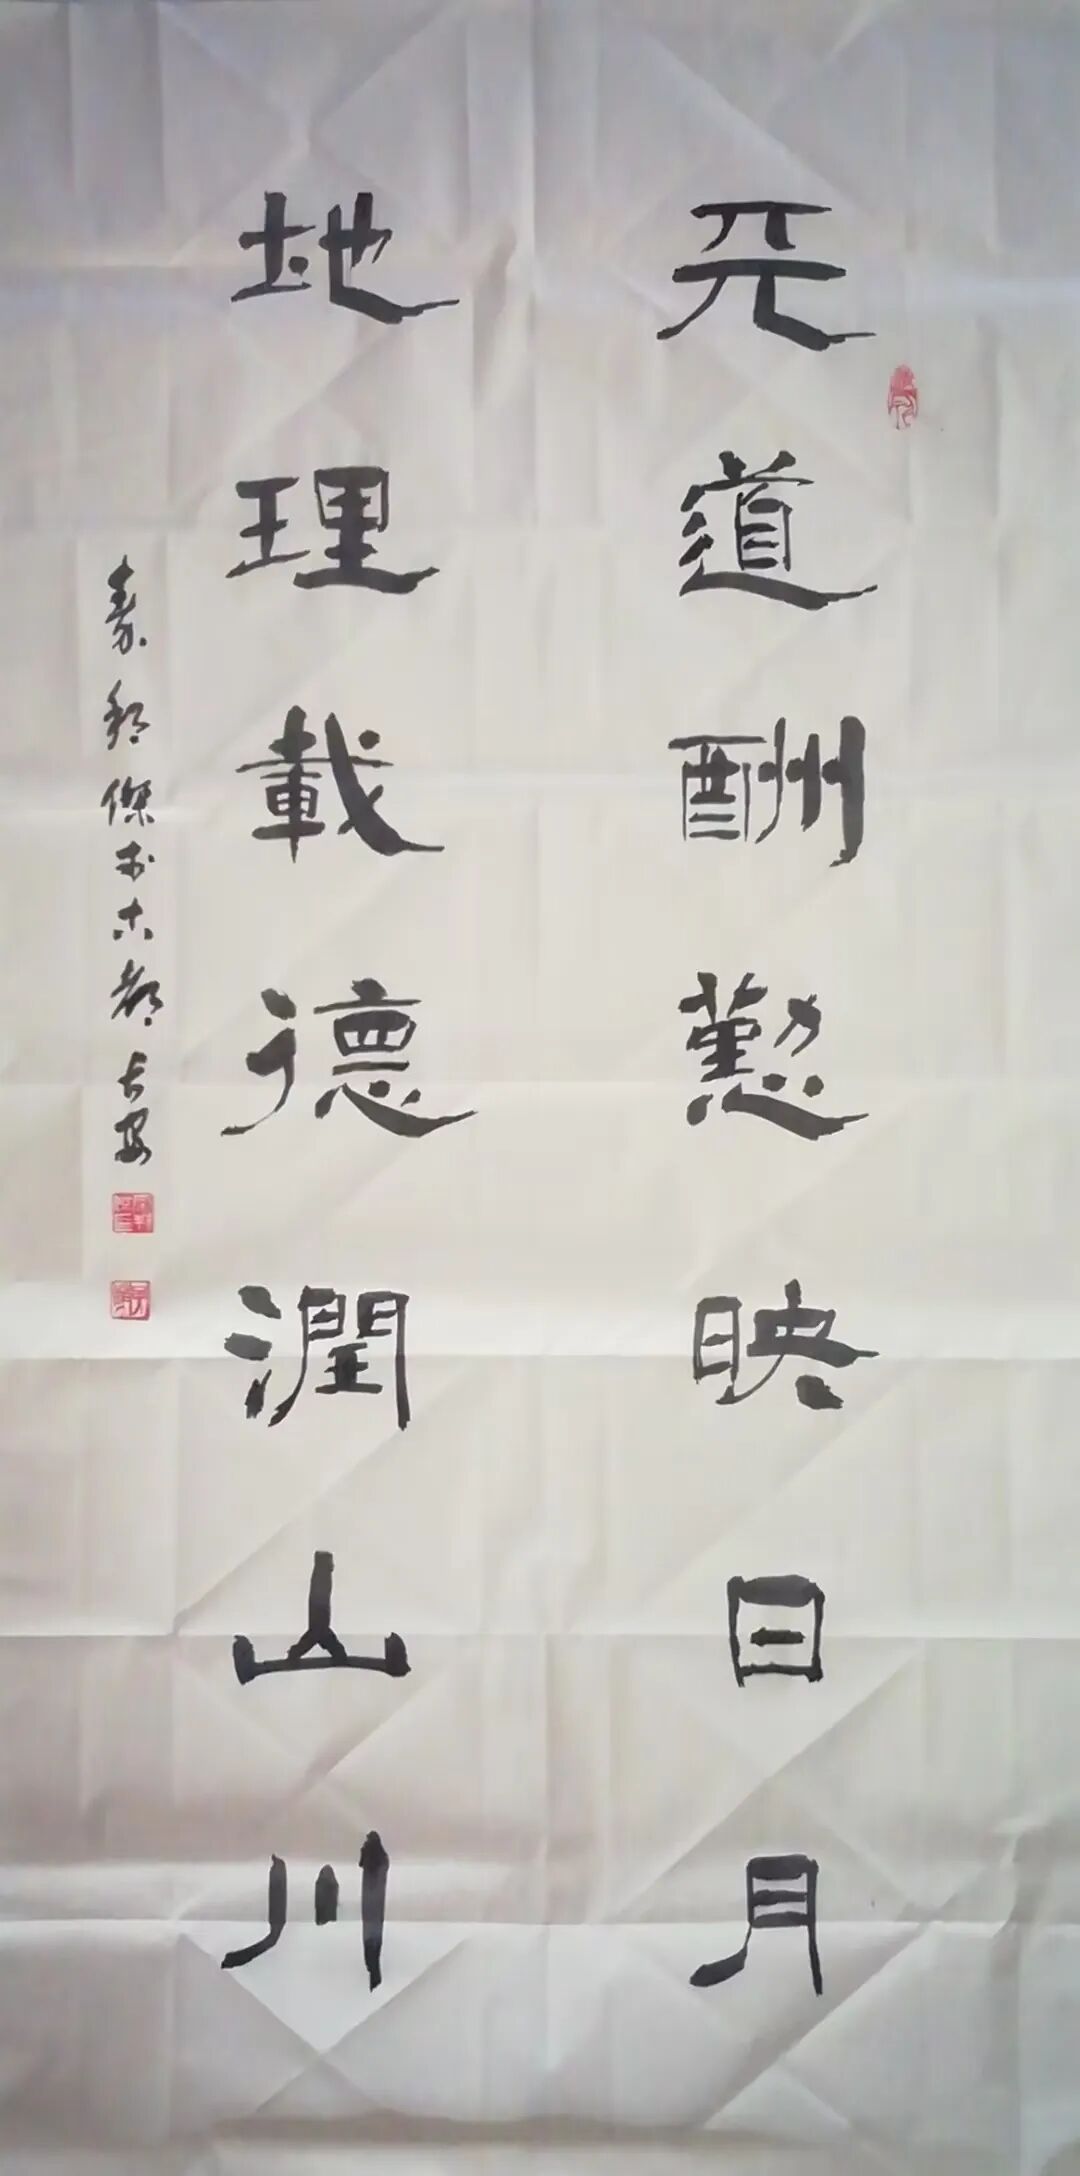 天道酬懃映日月
地理載德潤山川
傑 古都长安